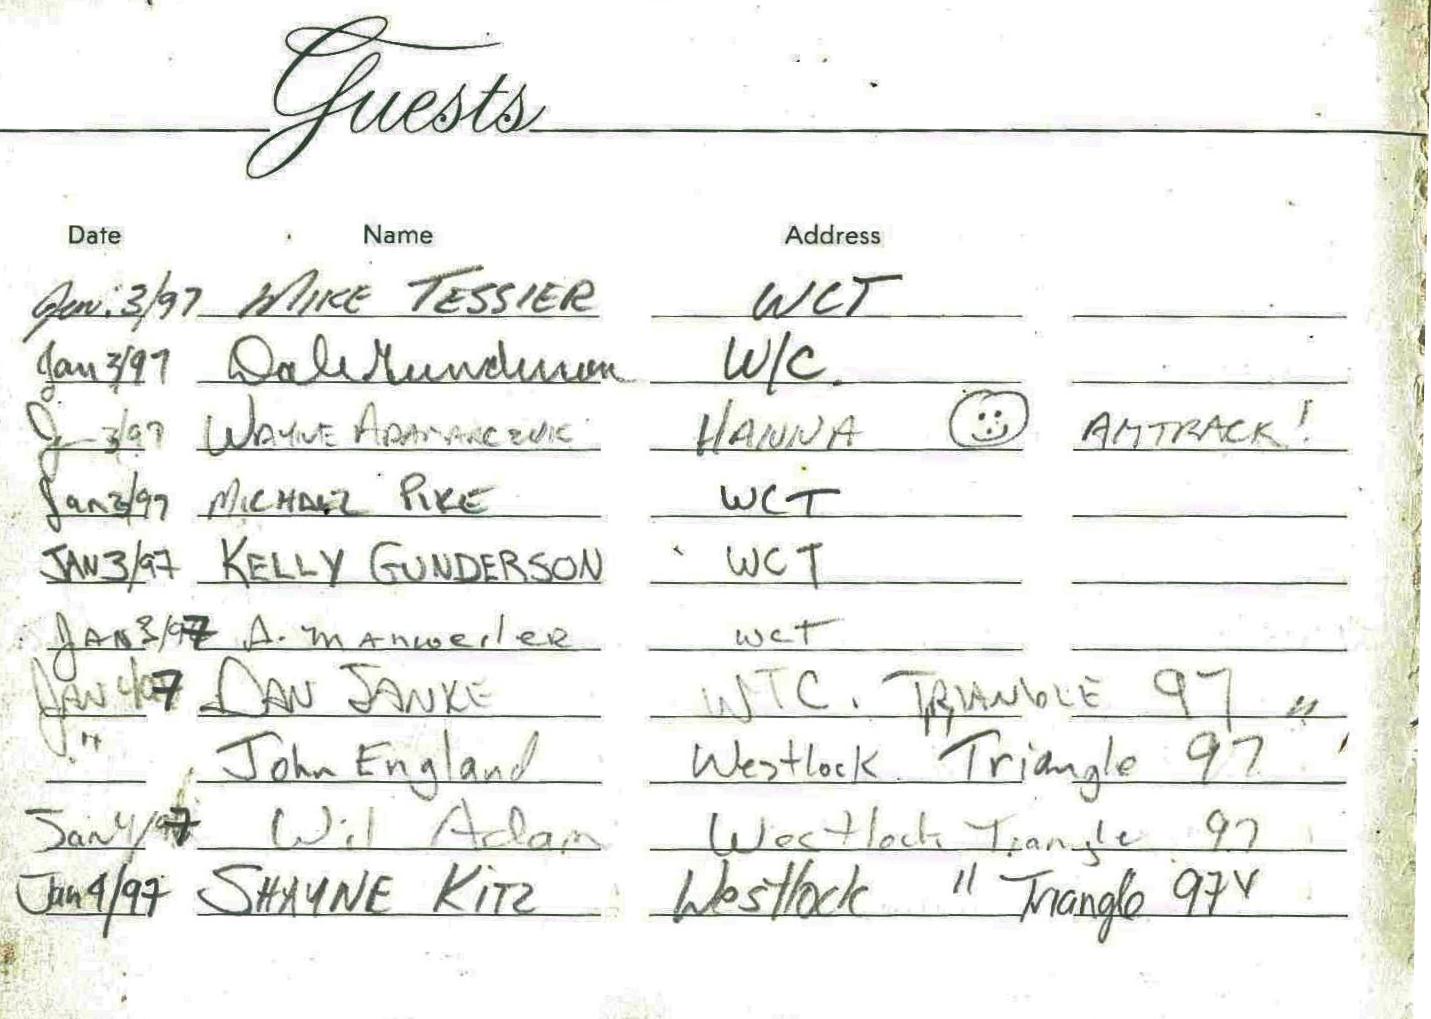 Guests
Date Name Address
Jan. 3/97 MIKE TESSIER WCT
Jan 3/97 Dale Gunderson W/C.
Jan 3/97 WAYNE ADAMARCZUK HANNA AMTRACK!
Jan 3/97 MICHAEL PIKE WCT
JAN 3/97 KELLY GUNDERSON WCT
JAN 3/97 A. Manweiler WCT
JAN 4/97 DAN JANKE WTC. TRIANGLE 97 "
" John England Westlock Triangle 97
Jan 4/97 Wil Adam Westlock Triangle 97
Jan 4/97 SHAYNE KITZ Westlock " Triangle 97"